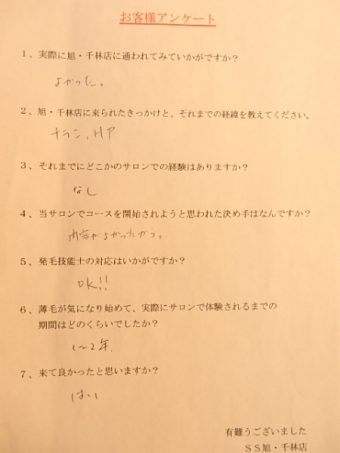 お客様アンケート
1、実際に旭・千林店に通われてみていかがですか？
よかった。
2、旭・千林店に来られたきっかけと、それまでの経緯を教えてください。
チラシ、HP
3、それまでにどこかのサロンでの経験はありますか？
なし
4、当サロンでコースを開始されようと思われた決め手はなんですか？
内容がよかったから。
5、発毛技能士の対応はいかがですか？
OK!!
6、薄毛が気になり始めて、実際にサロンで体験されるまでの
期間はどのくらいでしたか？
1〜2年
7、来て良かったと思いますか？
はい
有難うございました
SS旭・千林店